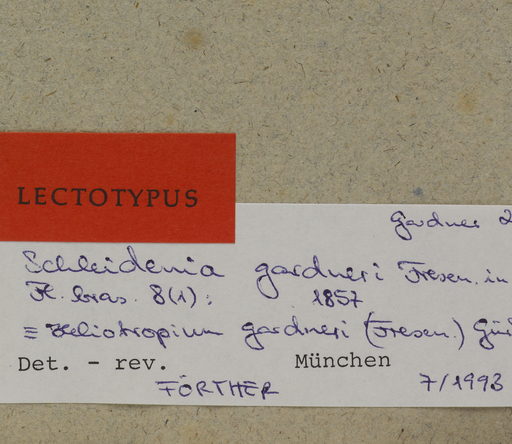 LECTOTYPUS
Gardner 2
Schleidenia gardneri Fresen. in
Fl. bras. 8(1): 1857
≡ Heliotropium gardneri (Fresen.) Gür
Det. - rev. München
FÖRTHER 7/1993